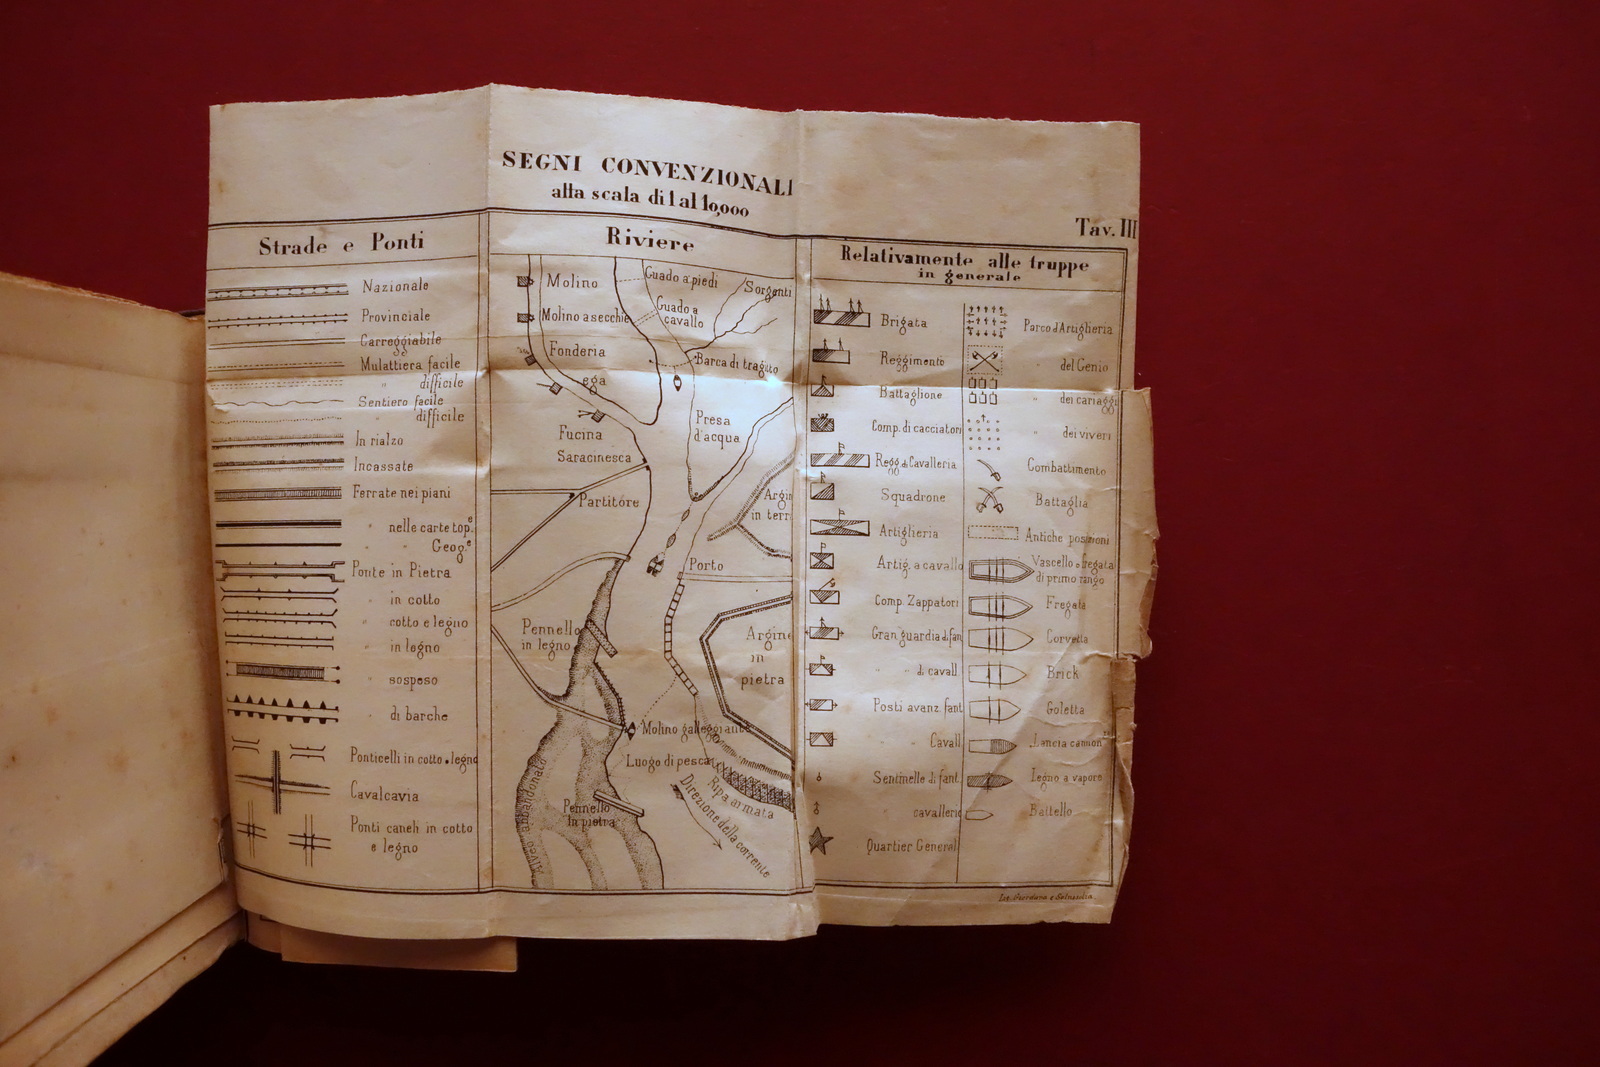 SEGNI CONVENZIONALI
alla scala di 1 al 10,000
Tav. III
Strade e Ponti
Nazionale
Provinciale
Carreggiabile
Mulattiera facile
" difficile
Sentiero facile
" difficile
In rialzo
Incassate
Ferrate nei piani
" nelle carte top.e
" " Geog.e
Ponte in Pietra
" in cotto
" cotto e legno
" in legno
" sospeso
" di barche
Ponticelli in cotto e legno
Cavalcavia
Ponti canali in cotto
e legno
Riviere
Molino
Guado a piedi
Sorgenti
Molino a secchie
Guado a
cavallo
Fonderia
Barca di tragitto
ega
Presa
d'acqua
Fucina
Saracinesca
Partitore
Argin
in terr
Porto
Pennello
in legno
Argine
in
pietra
Molino galleggiante
Luogo di pesca
Ripa armata
Direzione della corrente
Pennello
in pietra
Alveo abbandonato
Relativamente alle truppe
in generale
Brigata
Reggimento
Battaglione
Comp. di cacciatori
Regg. di Cavalleria
Squadrone
Artiglieria
Artig. a cavallo
Comp. Zappatori
Gran guardia di fan
" " di cavall
Posti avanz. fant
" " Cavall
Sentinelle di fant
" cavalleria
Quartier General
Parco d'Artiglieria
" del Genio
" dei cariaggi
" dei viveri
Combattimento
Battaglia
Antiche posizioni
Vascello o fregata
di primo rango
Fregata
Corvetta
Brick
Goletta
Lancia cannon
Legno a vapore
Battello
Lit. Giordana e